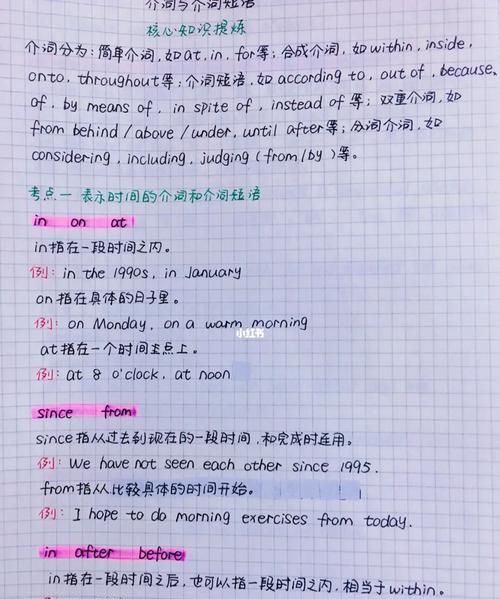 介词与介词短语
核心知识提炼
介词分为：简单介词，如at, in, for等；合成介词，如within, inside,
onto, throughout等；介词短语，如according to, out of, because
of, by means of, in spite of, instead of等；双重介词，如
from behind / above / under, until after等；分词介词，如
considering, including, judging (from/by)等。
考点一 表示时间的介词和介词短语
in on at
in指在一段时间之内。
例：in the 1990s, in January
on指在具体的日子里。
例：on Monday, on a warm morning
小红书
at指在一个时间点上。
例：at 8 o'clock, at noon
since from
since指从过去到现在的一段时间，和完成时连用。
例：We have not seen each other since 1995.
from指从比较具体的时间开始。
例：I hope to do morning exercises from today.
in after before
in指在一段时间之后，也可以指一段时间之内，相当于within。